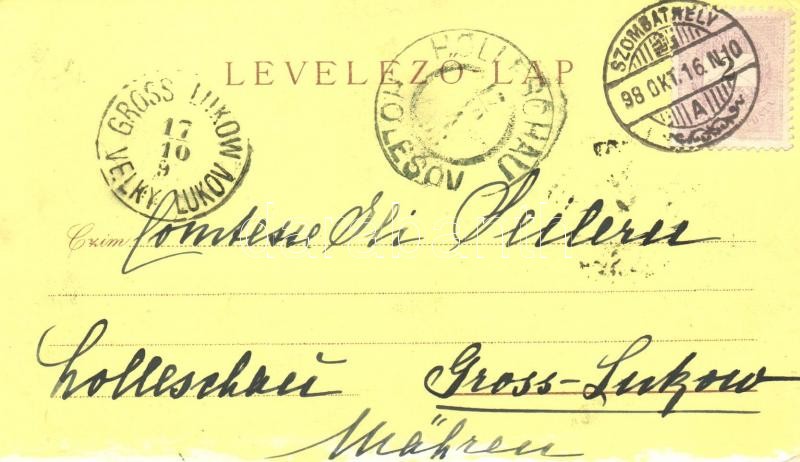 LEVELEZŐ-LAP
SZOMBATHELY
98 OKT. 16. N. 10
A
HOLLESCHAU
HOLEŠOV
GROSS LUKOW
17
10
9
VELKÝ LUKOV
Czim Comtesse Eli Seilern
Holleschau Gross-Lukow
Mähren